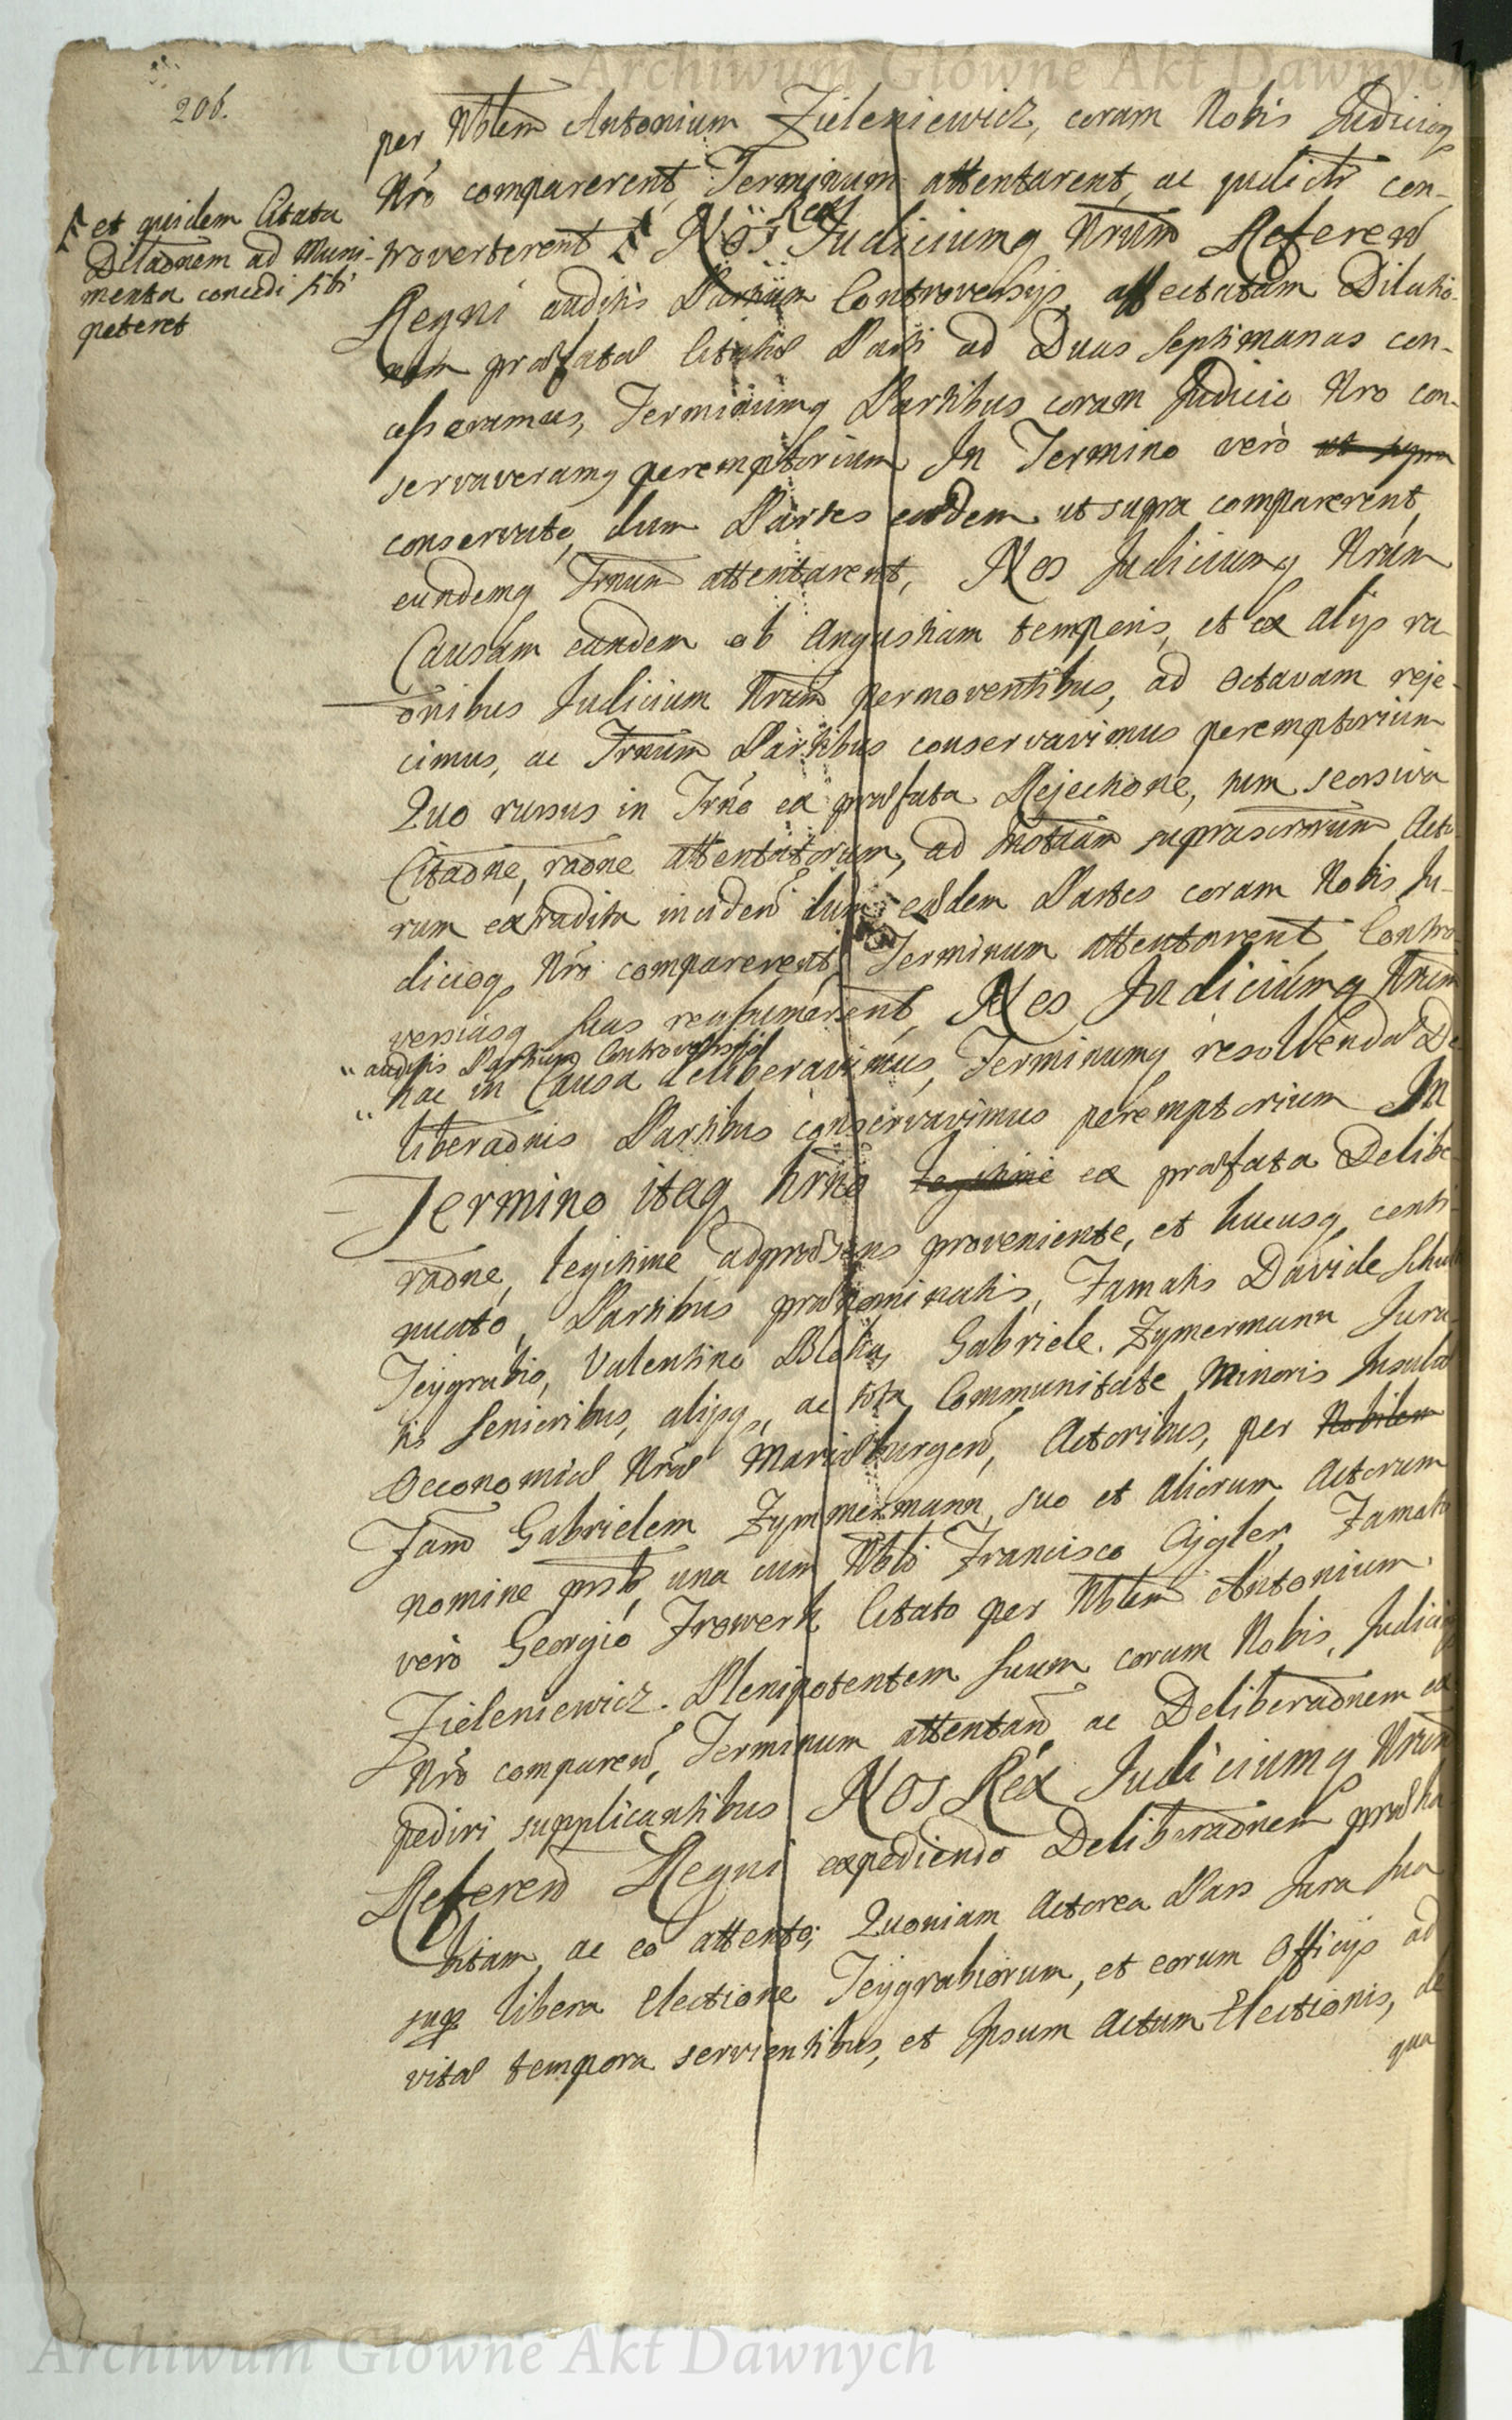 Archiwum Główne Akt Dawnych
206.
per Nblem Antonium Zieleniewicz, coram Nobis Judicioq
Nro comparerent, Terminum attentarent, ac judictr con-
troverterent Nos Rex Judiciumq Nrum Referen
et quidem Citata
Dilaonem ad Muni-
menta concedi sibi
peteret
Regni auditis Partium Controversijs, affectatam Dilatio-
nem præfatæ Citatæ Parti ad Duas Septimanas con-
cesseramus, Terminumq Partibus coram Judicio Nro con-
servaveramq peremptorium. In Termino verò ut supra
conservato, dum Partes eædem ut supra comparerent,
eundemq Trnum attentarent, Nos Judiciumq Nrum
Causam eandem ob Angustiam temporis, et ex alijs ra
onibus Judicium Nrum permoventibus, ad Octavam reje-
cimus, ac Trnum Partibus conservavimus peremptorium
Quo rursus in Trno ex præfata Rejectione, tum seorsiva
Citaone, raone attentatorum, ad Instaam suprascrorum Acto
rum extradita inciden dum eædem Partes coram Nobis Ju-
dicioq Nro comparerent, Terminum attentarent Contro-
versiasq suas reassumerent, Nos Judiciumq Nrum
auditis Partium Controversijs
hac in Causa deliberavimus, Terminumq resolvendæ De
liberaonis Partibus conservavimus peremptorium In
Termino itaq hrno legitime ex præfata Delibe
raone, legitime adpræsens proveniente, et hucusq conti
nuato, Partibus prænominatis, Famatis Davide Schul
Teygrabio, Valentino Gabriele Zymermann Jura
tis Senioribus, alijsq, ac tota Communitate Minoris Insulæ
Oeconomiæ Nræ Mariæburgen, Actoribus, per Nobilem
Fam Gabrielem Zymmermann, suo et aliorum Actorum
nomine prstb, una cum Nbli Francisco Ajgler, Famato
verò Georgio Frowerk Citato per Nblem Antonium
Zieleniewicz Plenipotentem suum coram Nobis, Judicioq
Nro comparen, Terminum attentan ac Deliberaonem ex
pediri supplicantibus Nos Rex Judiciumq Nrum
Referen Regni expediendo Deliberaonem præha
bitam, ac eo attento; Quoniam Actorea Pars Jura sua
suq libera Electione Teygrabiorum, et eorum Officijs ad
vitæ tempora servientibus, et Ipsum Actum Electionis, de
qua
Archiwum Główne Akt Dawnych